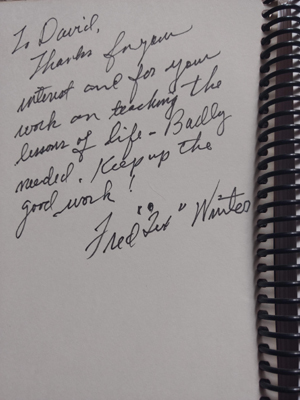 To David,
Thanks for your
interest and for your
work on teaching the
lessons of life - Badly
needed. Keep up the
good work!
Fred "Tex" Winter